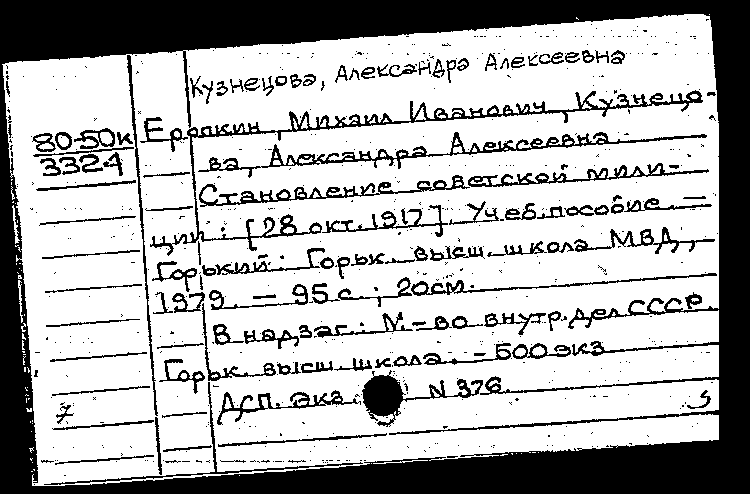 Кузнецова, Александра Алексеевна
80-50к Еропкин, Михаил Иванович, Кузнецо-
3324 ва, Александра Алексеевна.
Становление советской мили-
ции: [28 окт. 1917]. Учеб. пособие. —
Горький: Горьк. высш. школа МВД,
1979. — 95 с.; 20см.
В надзаг.: М-во внутр. дел СССР.
Горьк. высш. школа. - 500 экз
ДСП. Экз. N 376.
7